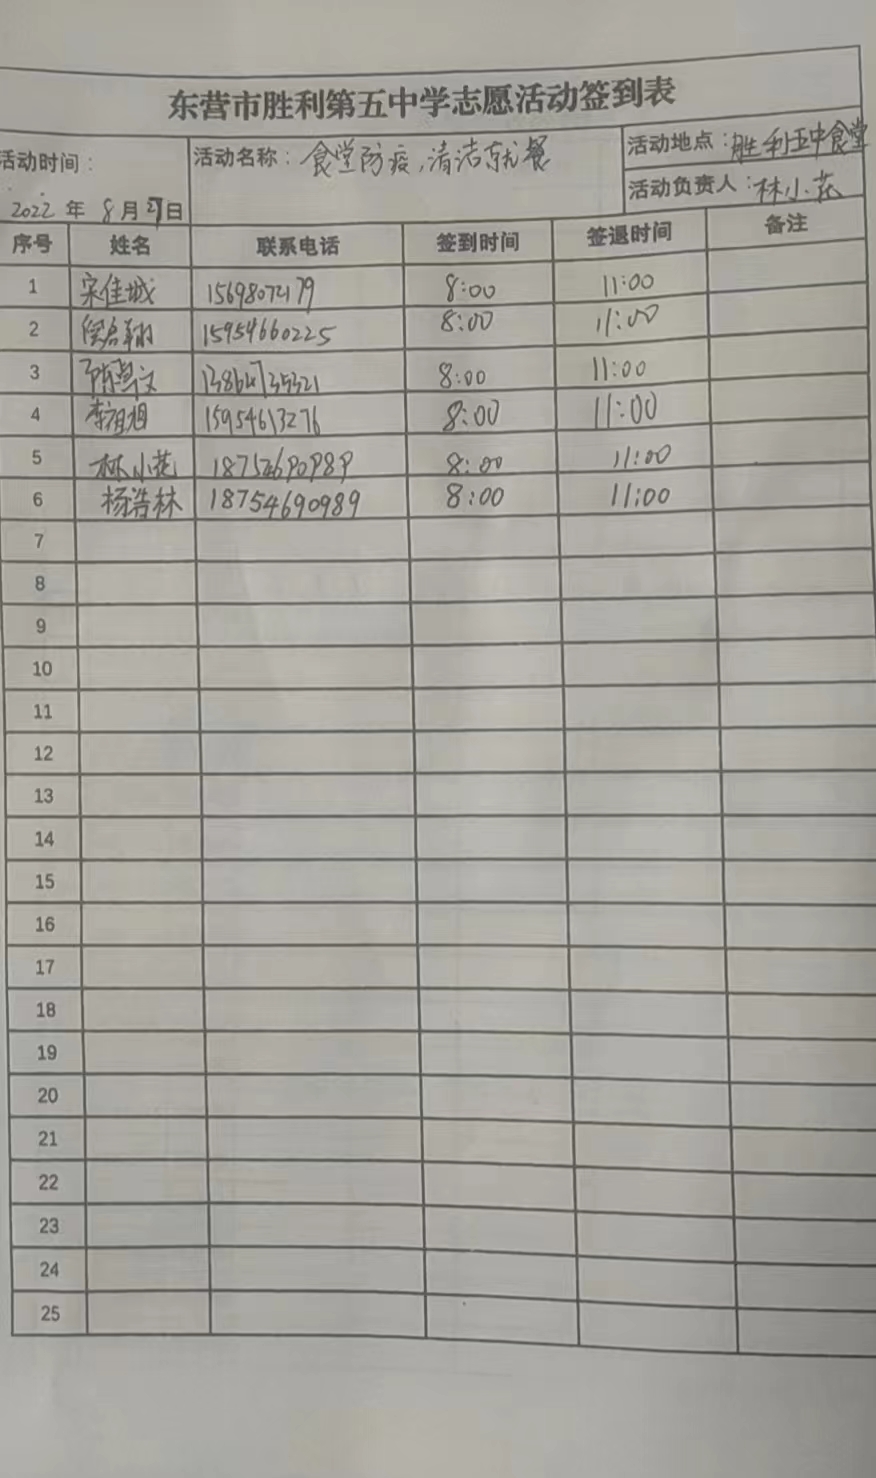 东营市胜利第五中学志愿活动签到表
活动时间： 活动名称：食堂防疫，清洁就餐 活动地点：胜利五中食堂
2022 年 8 月 27 日 活动负责人：林小花
序号 姓名 联系电话 签到时间 签退时间 备注
1 宋佳城 15698072179 8:00 11:00
2 15954660225 8:00 11:00
3 13864735321 8:00 11:00
4 李祖旭 15954613276 8:00 11:00
5 林小花 8:00 11:00
6 杨浩林 18754690989 8:00 11:00
7
8
9
10
11
12
13
14
15
16
17
18
19
20
21
22
23
24
25